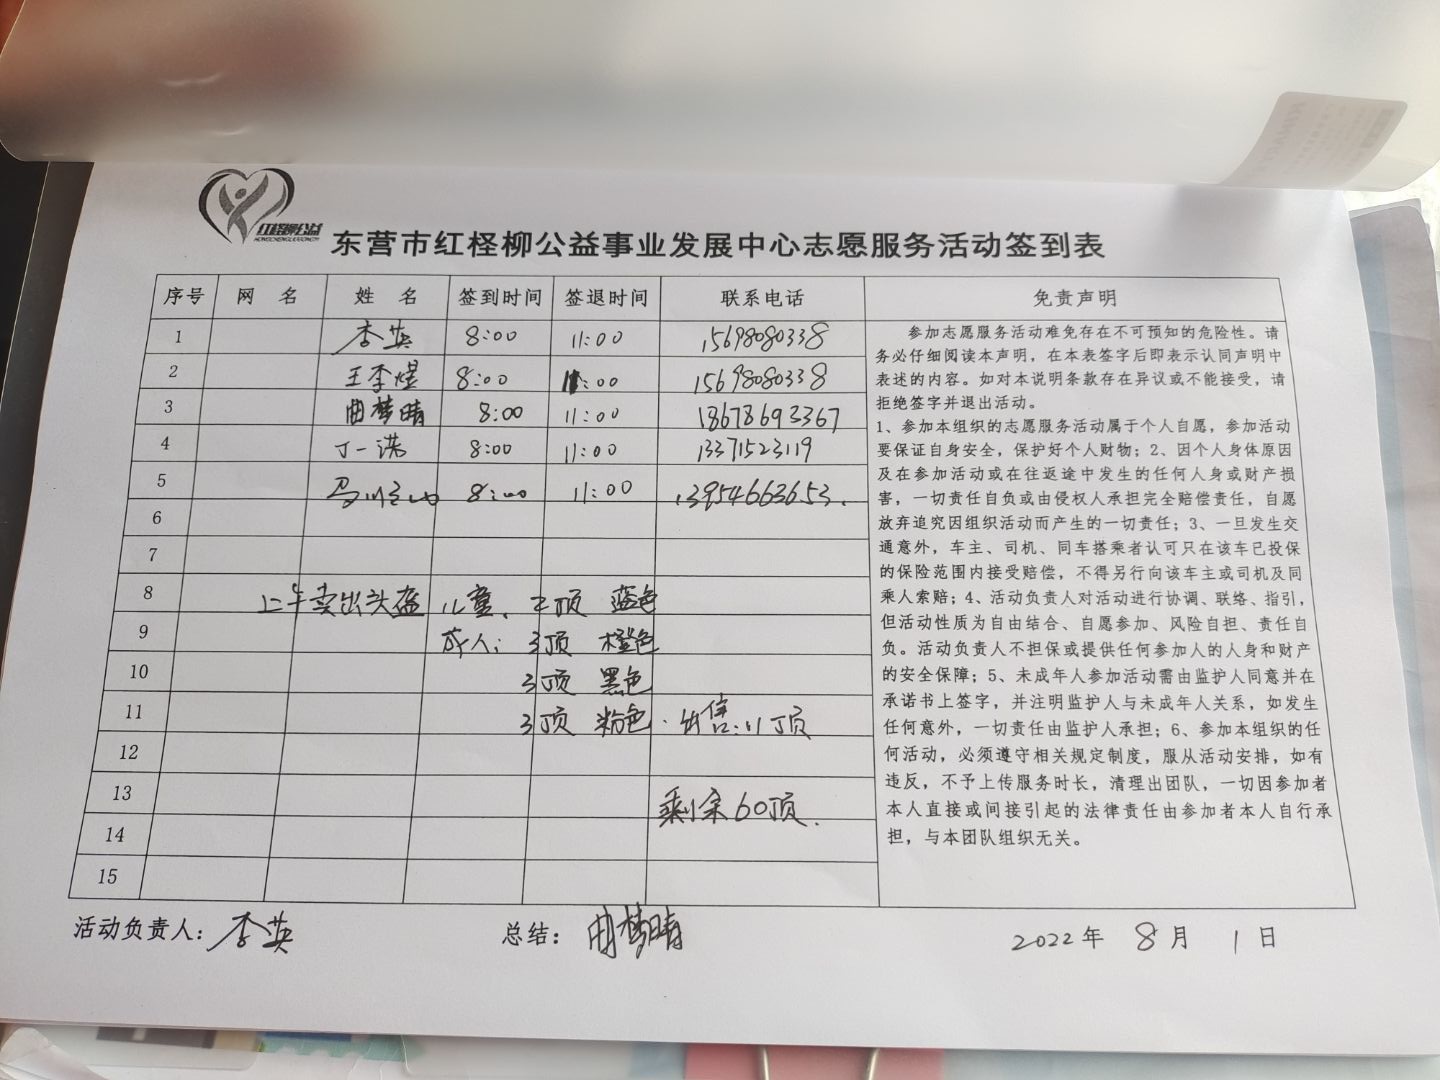 红柽柳公益
东营市红柽柳公益事业发展中心志愿服务活动签到表
序号 网 名 姓 名 签到时间 签退时间 联系电话 免责声明
1 李英 8:00 11:00 15698080338
2 王李煜 8:00 11:00 15698080338
3 曲梦晴 8:00 11:00 18678693367
4 丁一洪 8:00 11:00 13371523119
5 8:00 11:00 13954663653.
6
7
8 上午卖出头盔 儿童: 2顶 蓝色
9 成人: 3顶 橙色
10 3顶 黑色
11 3顶 粉色. 出售:11顶
12
13 剩余60顶.
14
15
参加志愿服务活动难免存在不可预知的危险性。请
务必仔细阅读本声明，在本表签字后即表示认同声明中
表述的内容。如对本说明条款存在异议或不能接受，请
拒绝签字并退出活动。
1、参加本组织的志愿服务活动属于个人自愿，参加活动
要保证自身安全，保护好个人财物；2、因个人身体原因
及在参加活动或在往返途中发生的任何人身或财产损
害，一切责任自负或由侵权人承担完全赔偿责任，自愿
放弃追究因组织活动而产生的一切责任；3、一旦发生交
通意外，车主、司机、同车搭乘者认可只在该车已投保
的保险范围内接受赔偿，不得另行向该车主或司机及同
乘人索赔；4、活动负责人对活动进行协调、联络、指引，
但活动性质为自由结合、自愿参加、风险自担、责任自
负。活动负责人不担保或提供任何参加人的人身和财产
的安全保障；5、未成年人参加活动需由监护人同意并在
承诺书上签字，并注明监护人与未成年人关系，如发生
任何意外，一切责任由监护人承担；6、参加本组织的任
何活动，必须遵守相关规定制度，服从活动安排，如有
违反，不予上传服务时长，清理出团队，一切因参加者
本人直接或间接引起的法律责任由参加者本人自行承
担，与本团队组织无关。
活动负责人：李英 总结：曲梦晴 2022年 8月 1日